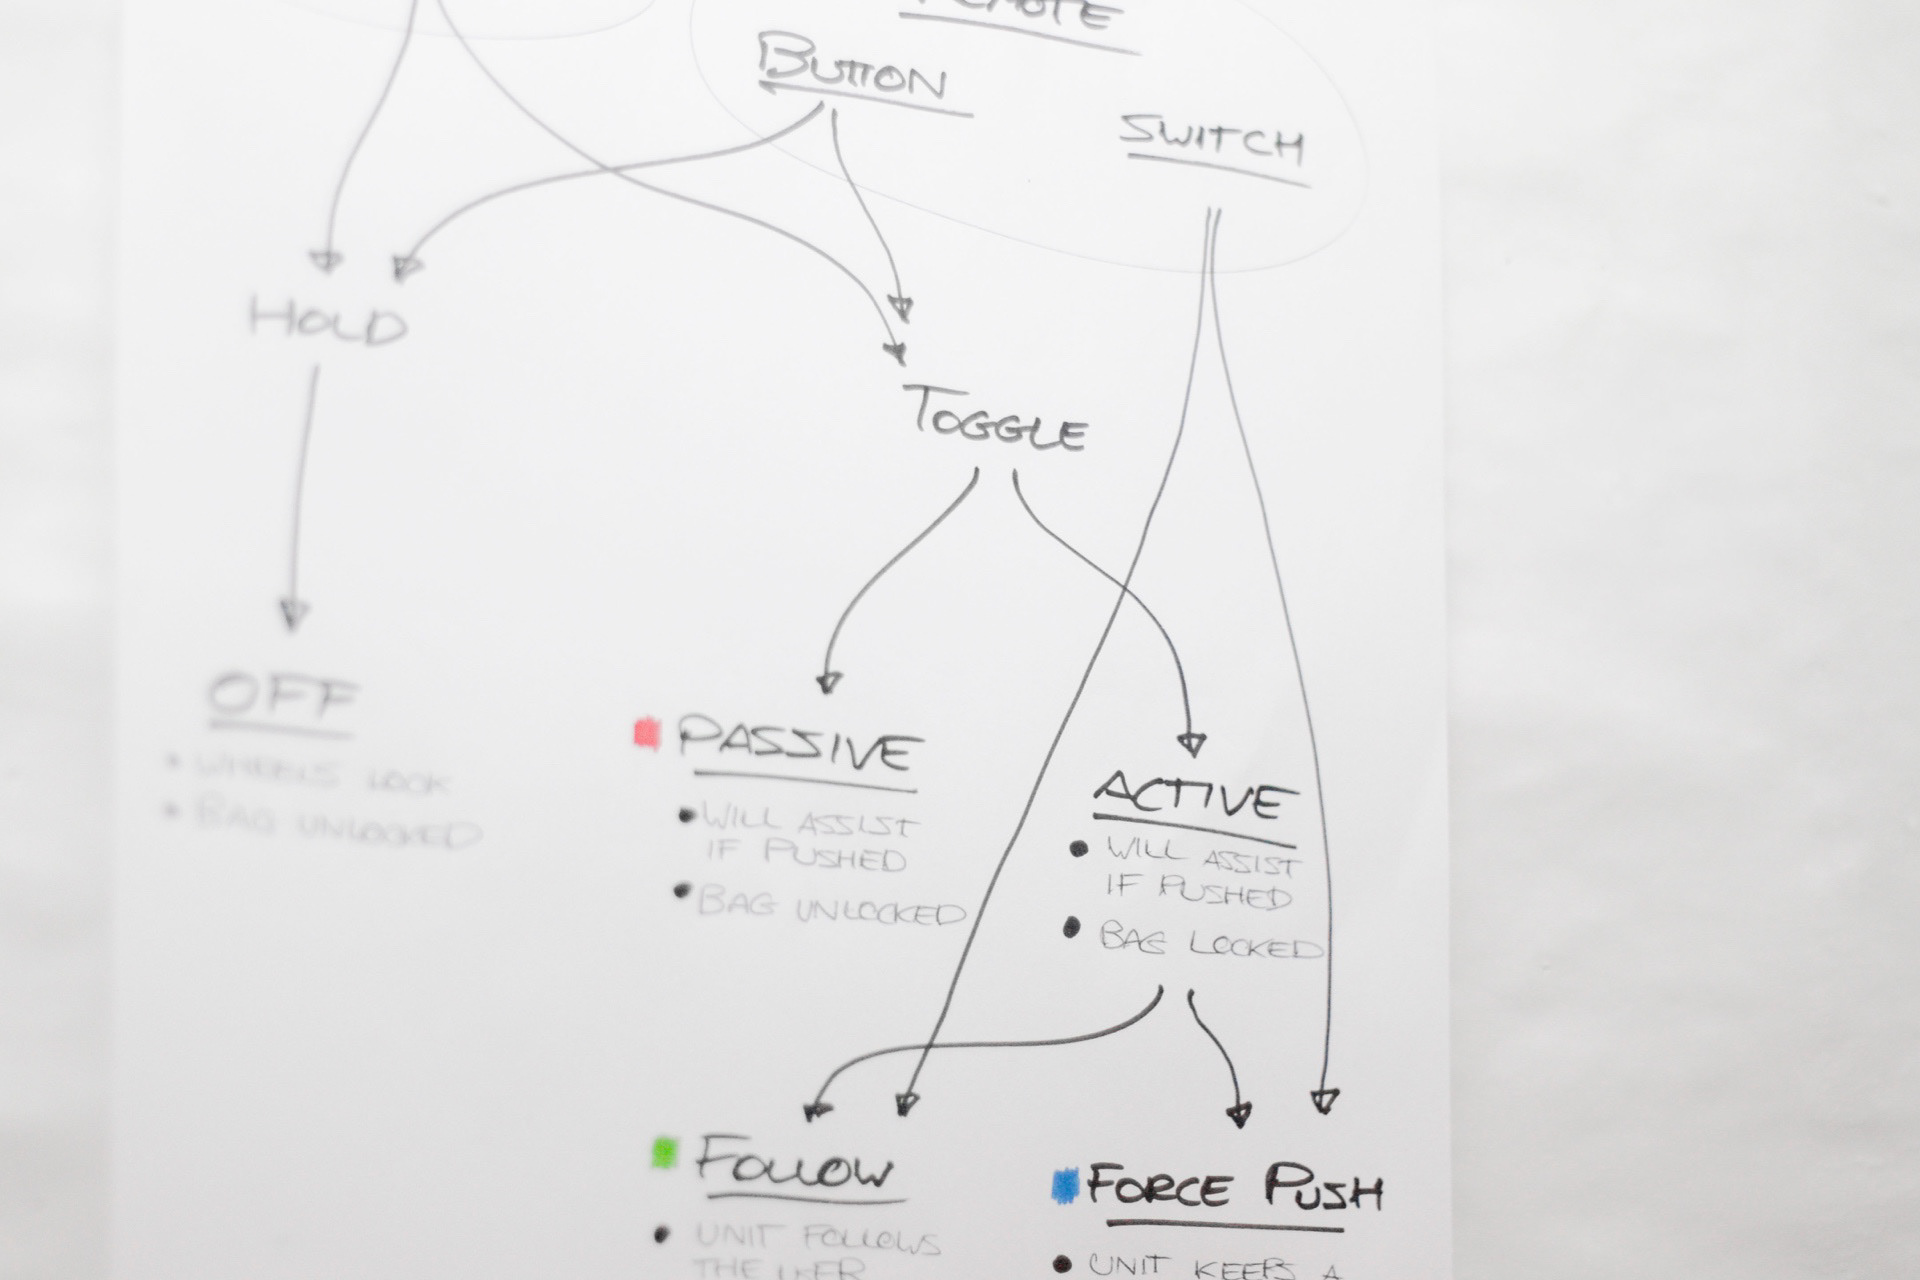 BUTTON
SWITCH
HOLD
TOGGLE
OFF
• WHEELS LOCK
• BAG UNLOCKED
PASSIVE
• WILL ASSIST
IF PUSHED
• BAG UNLOCKED
ACTIVE
• WILL ASSIST
IF PUSHED
• BAG LOCKED
FOLLOW
• UNIT FOLLOWS
THE USER
FORCE PUSH
• UNIT KEEPS A